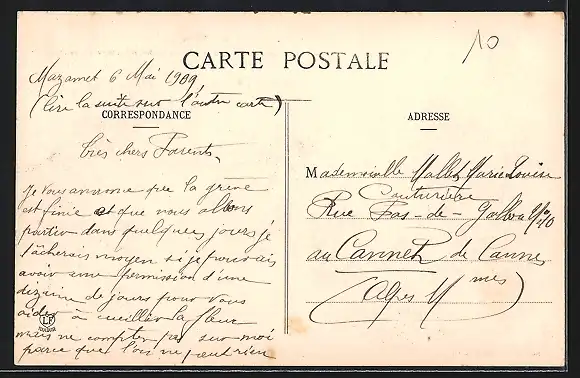 CARTE POSTALE
10
Mazamet 6 Mai 1909
(lire la suite sur l'autre carte)
CORRESPONDANCE
Très chers Parents,
Je vous annonce que la grève
est finie et que nous allons
partir dans quelques jours je
tâcherais moyen si je pouvais
avoir une permission d'une
dizaine de jours pour vous
aider à cueillir la fleur
mais ne compter pas sur moi
parce que l'on ne peut rien
LF
ADRESSE
Mademoiselle Mallet Marie Louise
Couturière
Rue Pas-de- N° 10
au Cannet de Cannes
(Alpes Mmes)